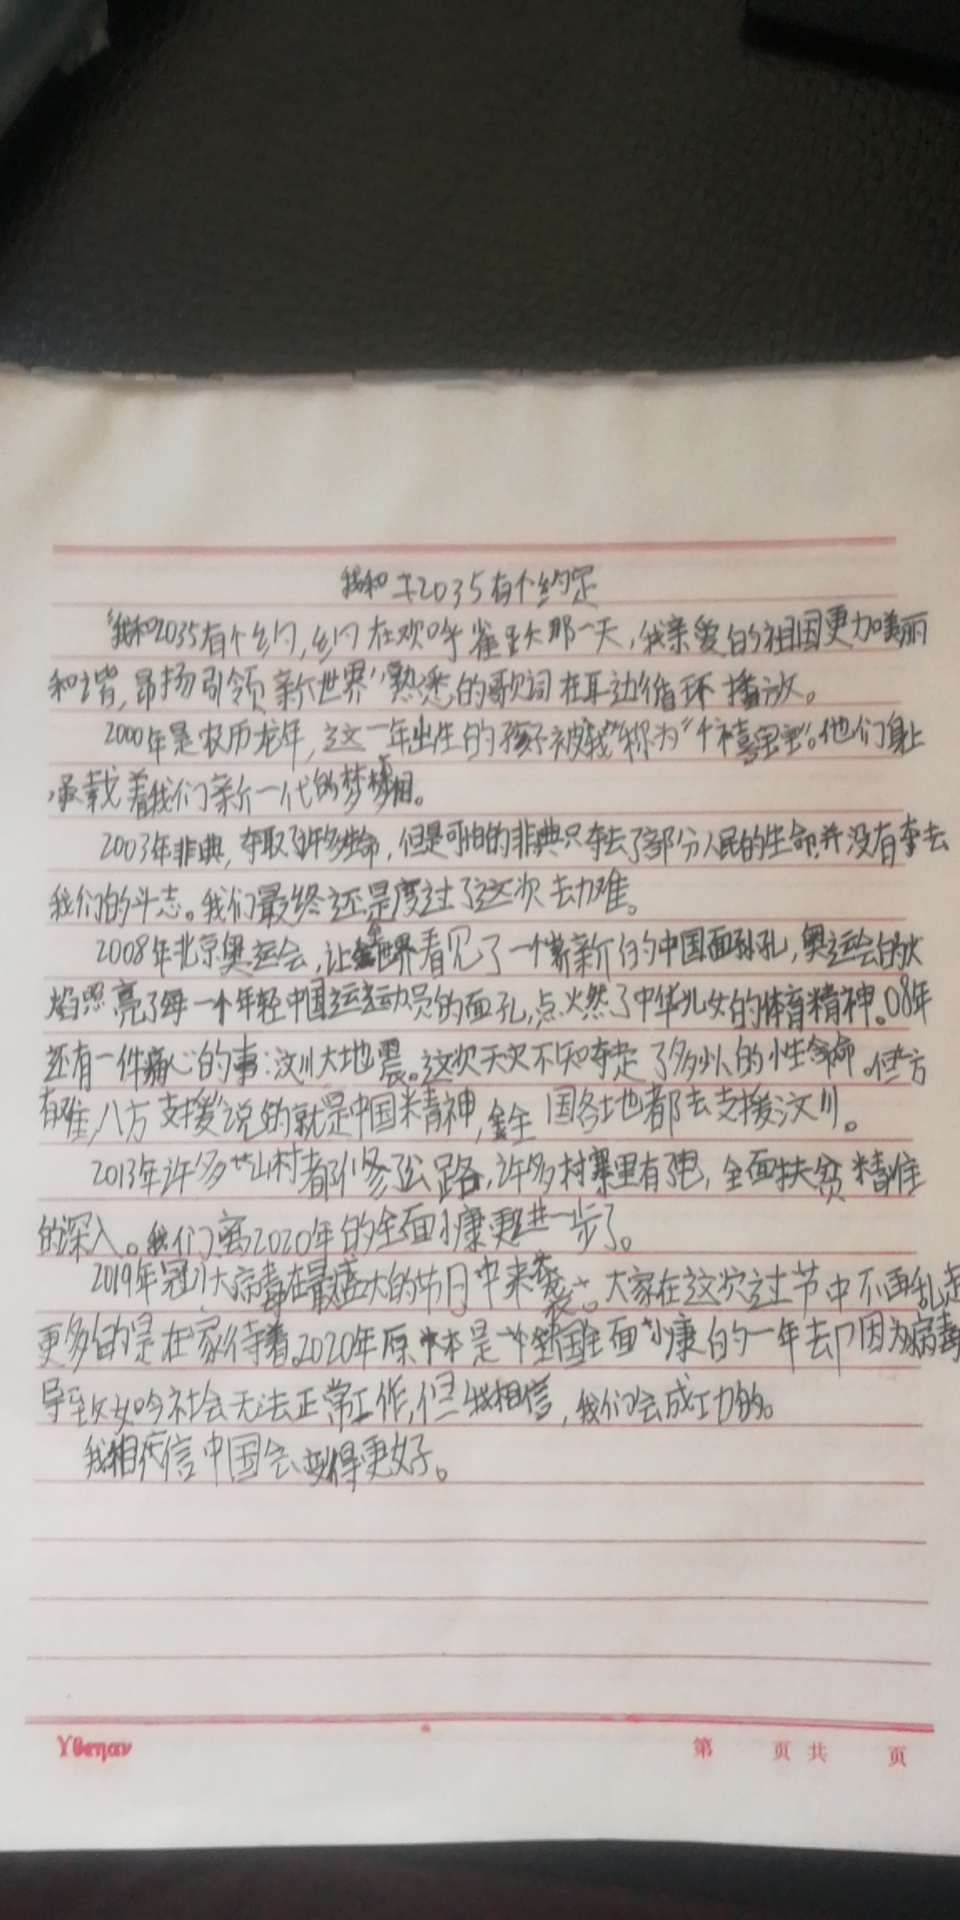 我和2035有个约定
“我和2035有个约,约在欢呼雀跃那一天,我亲爱的祖国更加美丽
和谐,昂扬引领新世界”熟悉的歌词在耳边循环播放。
2000年是农历龙年,这一年出生的孩子被我“称为“千禧宝宝”。他们身上
承载着我们新一代的梦想。
2003年非典,夺取了许多生命,但是可怕的非典只夺去了部分人民的生命并没有夺去
我们的斗志。我们最终还是度过了这次劫难。
2008年北京奥运会,让全世界看见了一个崭新的中国面孔,奥运会的火
焰照亮了每一个年轻中国运动员的面孔,点火然了中华儿女的体育精神。08年
还有一件痛心的事:汶川大地震。这次天灾不知夺走了多少人的性命。但“一方
有难,八方支援”说的就是中国精神,全国各地都去支援汶川。
2013年许多山村都修了公路,许多村寨里有了电,全面扶贫精准
的深入。我们离2020年的全面小康更进一步了。
2019年冠状病毒在最盛大的节日中来袭。大家在这次过节中不再乱
更多的是在家待着。2020年原本是全国全面小康的一年却因为病毒
导致如今社会无法正常工作,但我相信,我们会成功的。
我相信中国会变得更好。
Ythenan
第 页 共 页